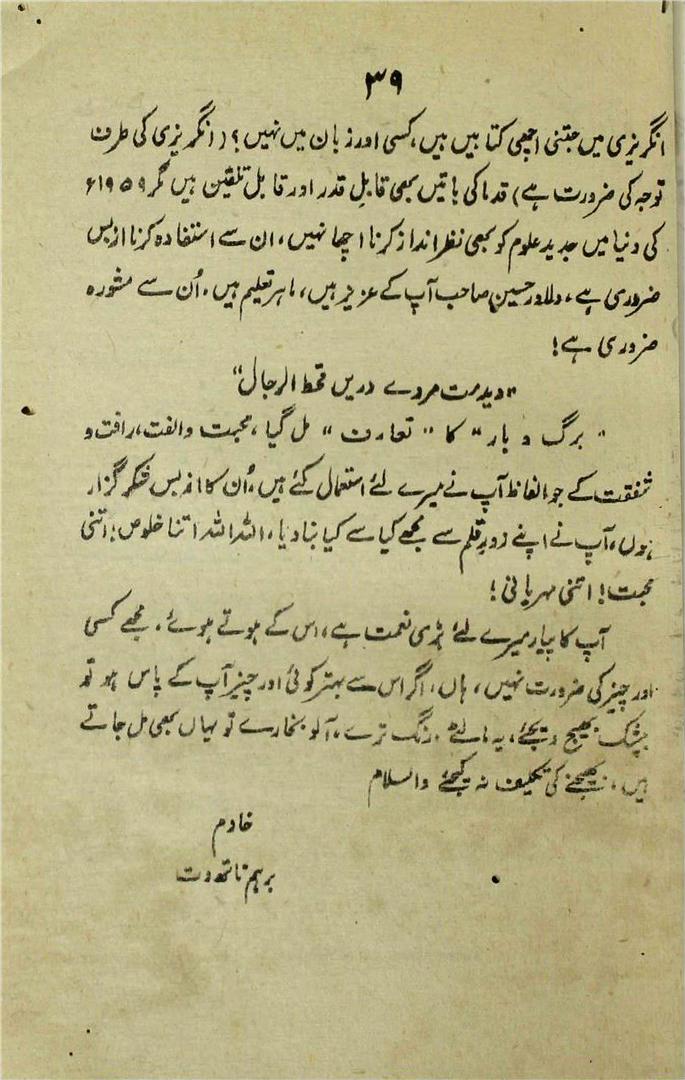 ۳۹
انگریزی میں جتنی اچھی کتابیں ہیں، کسی اور زبان میں نہیں؟ (انگریزی کی طرف
توجہ کی ضرورت ہے) قدما کی باتیں بھی قابلِ قدر اور قابل تلقین ہیں مگر ۱۹۵۹ء
کی دنیا میں جدید علوم کو بھی نظر انداز کرنا اچھا نہیں، ان سے استفادہ کرنا ازبس
ضروری ہے، دلاور حسین صاحب آپ کے عزیز ہیں، ماہر تعلیم ہیں۔ اُن سے مشورہ
ضروری ہے!
"دیدمت مردے دریں قحط الرجال"
"برگ و بار" کا "تعارف" مل گیا، محبت والفت، رافت و
شفقت کے جو الفاظ آپ نے میرے لئے استعمال کئے ہیں۔ اُن کا ازبس شکر گزار
ہوں، آپ نے اپنے زورِ قلم سے مجھے کیا سے کیا بنا دیا، اللہ اللہ اتنا خلوص! اتنی
محبت! اتنی مہربانی!
آپ کا پیار میرے لئے بڑی نعمت ہے، اس کے ہوتے ہوئے۔ مجھے کسی
اور چیز کی ضرورت نہیں، ہاں، اگر اس سے بہتر کوئی اور چیز آپ کے پاس ہو تو
بیشک بھیج دیجئے، یہ مالٹے۔ رنگ ترے، آلو بخارے تو یہاں بھی مل جاتے
ہیں، بھیجنے کی تکلیف نہ کیجئے والسلام
خادم
برہم ناتھ دت